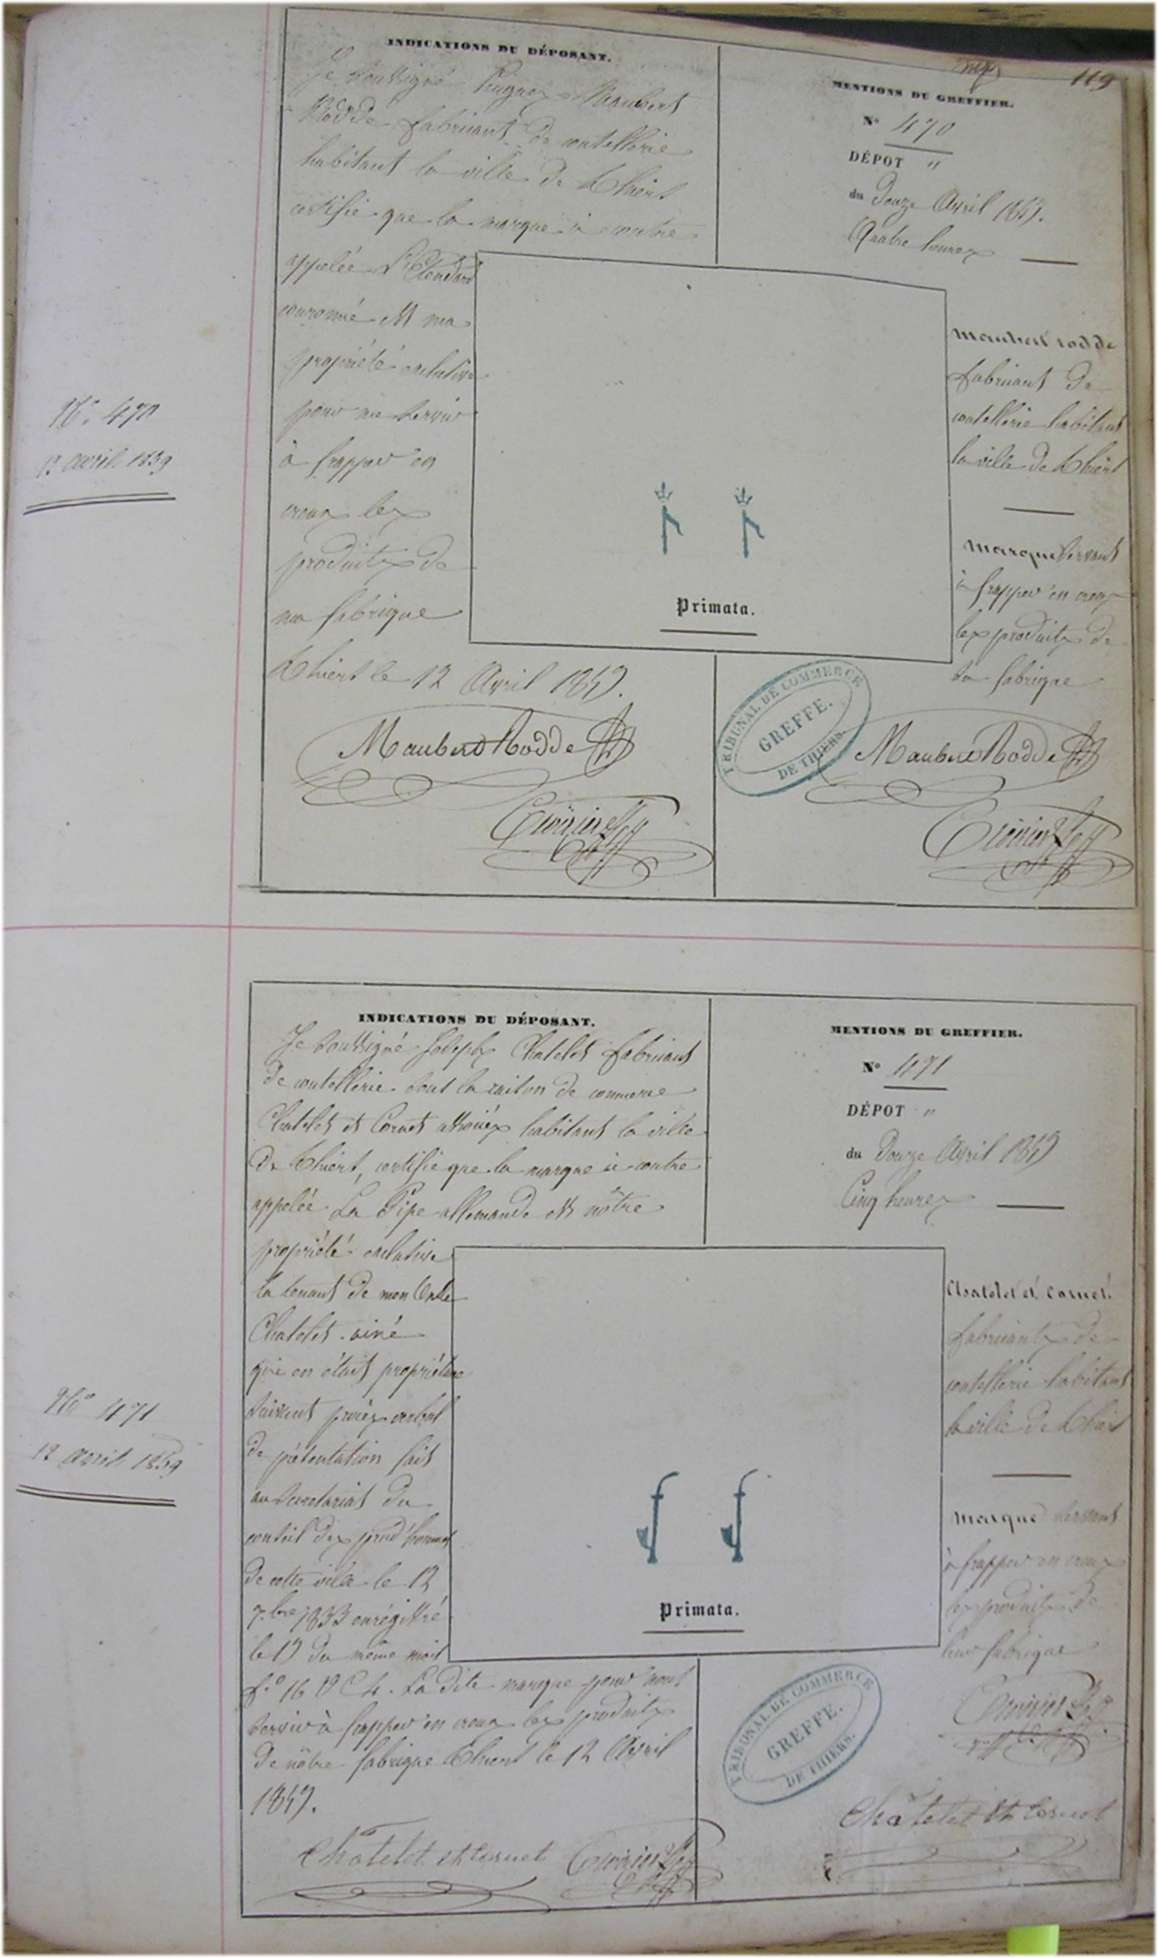 119
INDICATIONS DU DÉPOSANT.
Je soussigné Maubert
Rodde fabricant de coutellerie
habitant la ville de Thiers
certifie que la marque ci contre
appelée L'Etendard
couronné est ma
propriété exclusive
pour me servir
à frapper en
creux les
produits de
ma fabrique
Thiers le 12 Avril
Maubert Rodde
MENTIONS DU GREFFIER.
N° 470
DÉPOT "
du Douze Avril
Quatre heures
Maubert rodde
fabricant de
coutellerie habitant
la ville de Thiers
Marque servant
à frapper en creux
les produits de
sa fabrique
Maubert Rodde
Primata.
TRIBUNAL DE COMMERCE
GREFFE.
DE THIERS.
N° 470
12 avril 1859
INDICATIONS DU DÉPOSANT.
Je soussigné Joseph Chatelet fabricant
de coutellerie sous la raison de commerce
Chatelet et Cornet associés habitant la ville
de Thiers, certifie que la marque ci contre
appelée La Pipe allemande est nôtre
propriété exclusive
la tenant de mon Oncle
Chatelet ainé
qui en était propriétaire
suivant procès verbal
de présentation fait
au secrétariat du
conseil des prud'hommes
de cette ville le 12
7bre 1833 enrégistré
le 19 du même mois
f° 16 La dite marque pour nous
servir à frapper en creux les produits
de nôtre fabrique Thiers le 12 Avril
Châtelet et Cornet
MENTIONS DU GREFFIER.
N° 471
DÉPOT "
du Douze Avril
Cinq heures
Chatelet et Cornet
fabricants de
coutellerie habitant
la ville de Thiers
Marque servant
à frapper en creux
les produits de
leur fabrique
Châtelet et Cornet
Primata.
TRIBUNAL DE COMMERCE
GREFFE.
DE THIERS.
N° 471
12 avril 1859